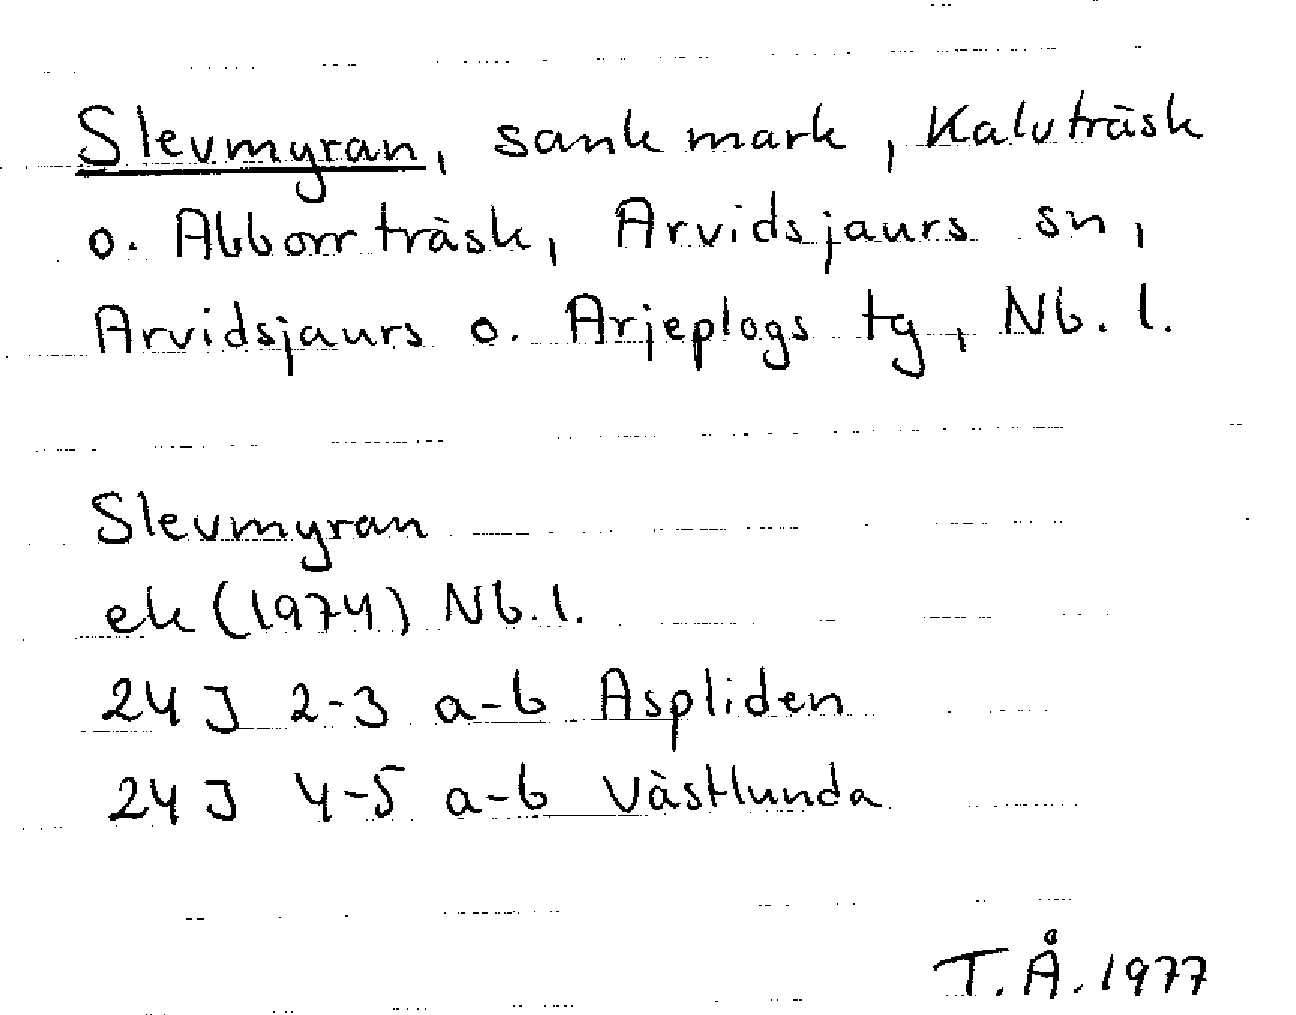 Slevmyran, sank mark, Kalvträsk
o. Abborrträsk, Arvidsjaurs sn,
Arvidsjaurs o. Arjeplogs tg, Nb. l.
Slevmyran
ek (1974) Nb. l.
24 J 2-3 a-b Aspliden
24 J 4-5 a-b Västlunda
T. Å. 1977